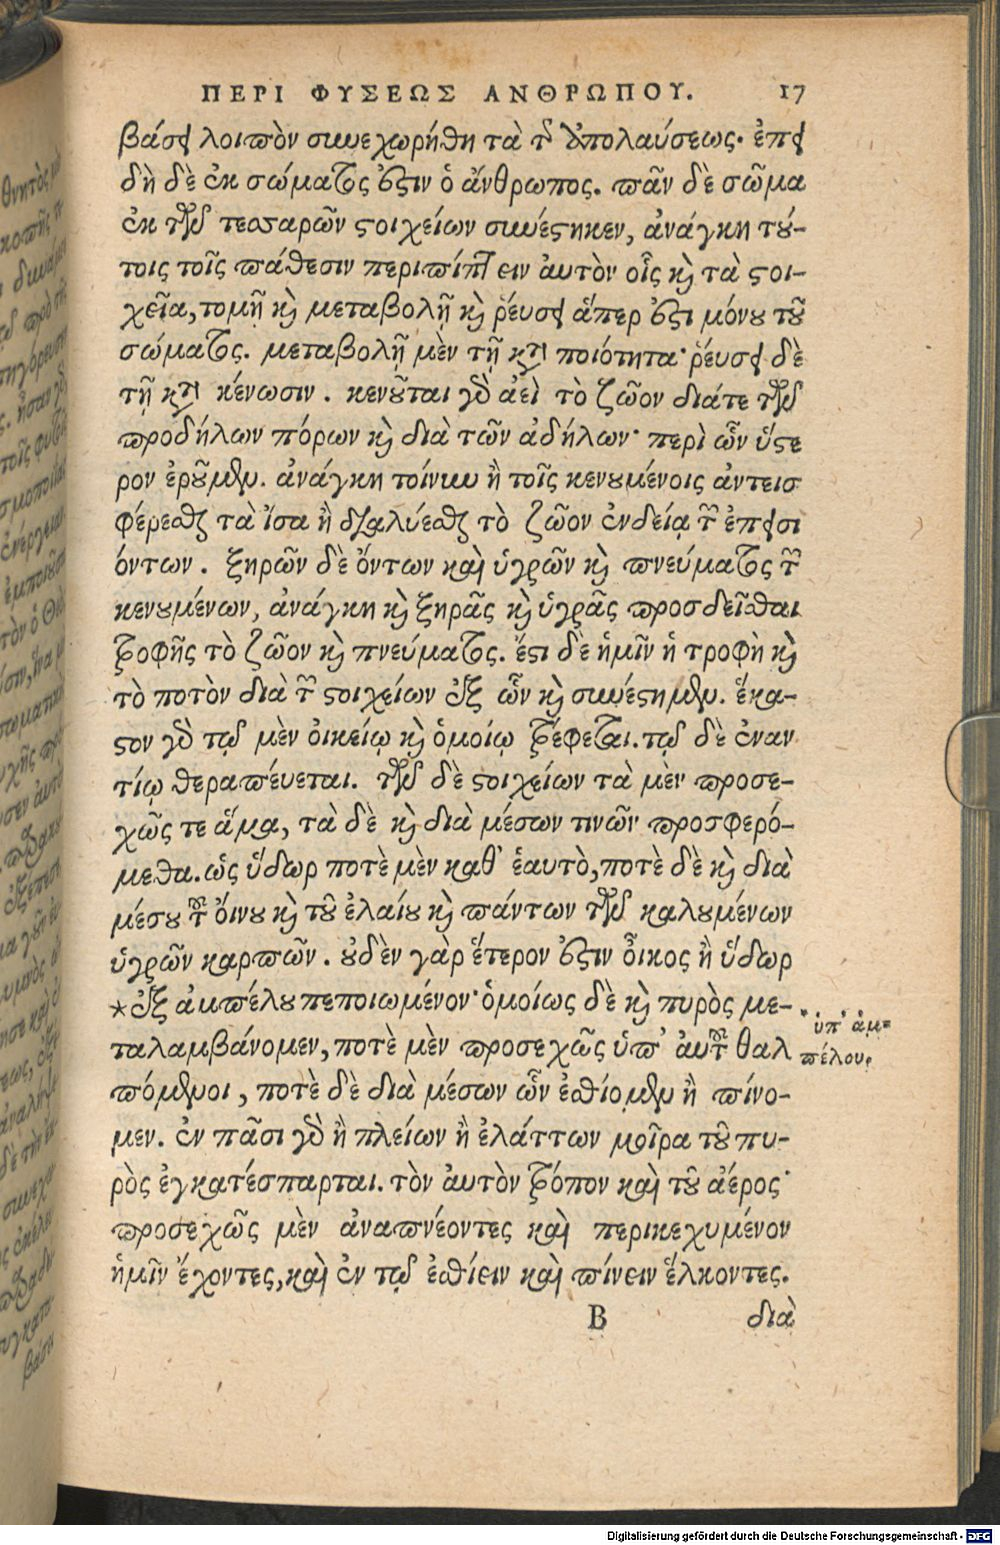 ΠΕΡΙ ΦΥΣΕΩΣ ΑΝΘΡΩΠΟΥ. 17
βάσει λοιπὸν συνεχωρήθη τὰ τῆς ἀπολαύσεως· ἐπει
δὴ δὲ ἐκ σώματος ἐστιν ὁ ἄνθρωπος. πᾶν δὲ σῶμα
ἐκ τῶν τεσσαρῶν στοιχείων συνέστηκεν, ἀνάγκη τού-
τοις τοῖς πάθεσιν περιπίπτειν ἀυτὸν οἷς καὶ τὰ στοι-
χεῖα, τομῇ καὶ μεταβολῇ καὶ ῥέυσει ἅπερ ἐστι μόνου τοῦ
σώματος. μεταβολῇ μὲν τῇ κατὰ ποιότητα· ῥέυσει δὲ
τῇ κατὰ κένωσιν. κενοῦται γὰρ ἀεὶ τὸ ζῶον διάτε τῶν
προδήλων πόρων καὶ διὰ τῶν ἀδήλων· περὶ ὧν ὕστε
ρον ἐροῦμεν. ἀνάγκη τοίνυν ἢ τοῖς κενουμένοις ἀντεισ
φέρεσθαι τὰ ἴσα ἢ διαλύεσθαι τὸ ζῶον ἐνδείᾳ τῶν ἐπεισι
όντων. ξηρῶν δὲ ὄντων καὶ ὑγρῶν καὶ πνεύματος τῶν
κενουμένων, ἀνάγκη καὶ ξηρᾶς καὶ ὑγρᾶς προσδεῖσθαι
τροφῆς τὸ ζῶον καὶ πνεύματος. ἔστι δὲ ἡμῖν ἡ τροφὴ καὶ
τὸ ποτὸν διὰ τῶν στοιχείων ἐξ ὧν καὶ συνέστημεν. ἕκα-
στον γὰρ τῷ μὲν ὀικείῳ καὶ ὁμοίῳ τρέφεται. τῷ δὲ ἐναν
τίῳ θεραπέυεται. τῶν δὲ στοιχείων τὰ μὲν προσε-
χῶς τε ἅμα, τὰ δὲ καὶ διὰ μέσων τινῶν προσφερό-
μεθα. ὡς ὕδωρ ποτὲ μὲν καθ' ἑαυτὸ, ποτὲ δὲ καὶ διὰ
μέσου τοῦ ὄινου καὶ τοῦ ἐλαίου καὶ πάντων τῶν καλουμένων
ὑγρῶν καρπῶν. οὐδὲν γὰρ ἕτερον ἐστιν ὀῖκος ἢ ὕδωρ
*ἐξ ἀμπέλου πεποιωμένον· ὁμοίως δὲ καὶ πυρὸς με-
ταλαμβάνομεν, ποτὲ μὲν προσεχῶς ὑπ' ἀυτοῦ θαλ
πόμενοι, ποτὲ δὲ διὰ μέσων ὧν ἐσθίομεν ἢ πίνο-
μεν. ἐν πᾶσι γὰρ ἢ πλείων ἢ ἐλάττων μοῖρα τοῦ πυ-
ρὸς ἐγκατέσπαρται. τὸν ἀυτὸν τρόπον καὶ τοῦ ἀέρος·
προσεχῶς μὲν ἀναπνέοντες καὶ περικεχυμένον
ἡμῖν ἔχοντες, καὶ ἐν τῷ ἐσθίειν καὶ πίνειν ἕλκοντες.
*ὑπ' ἀμ-
πέλου.
B διὰ
Digitalisierung gefördert durch die Deutsche Forschungsgemeinschaft - DFG